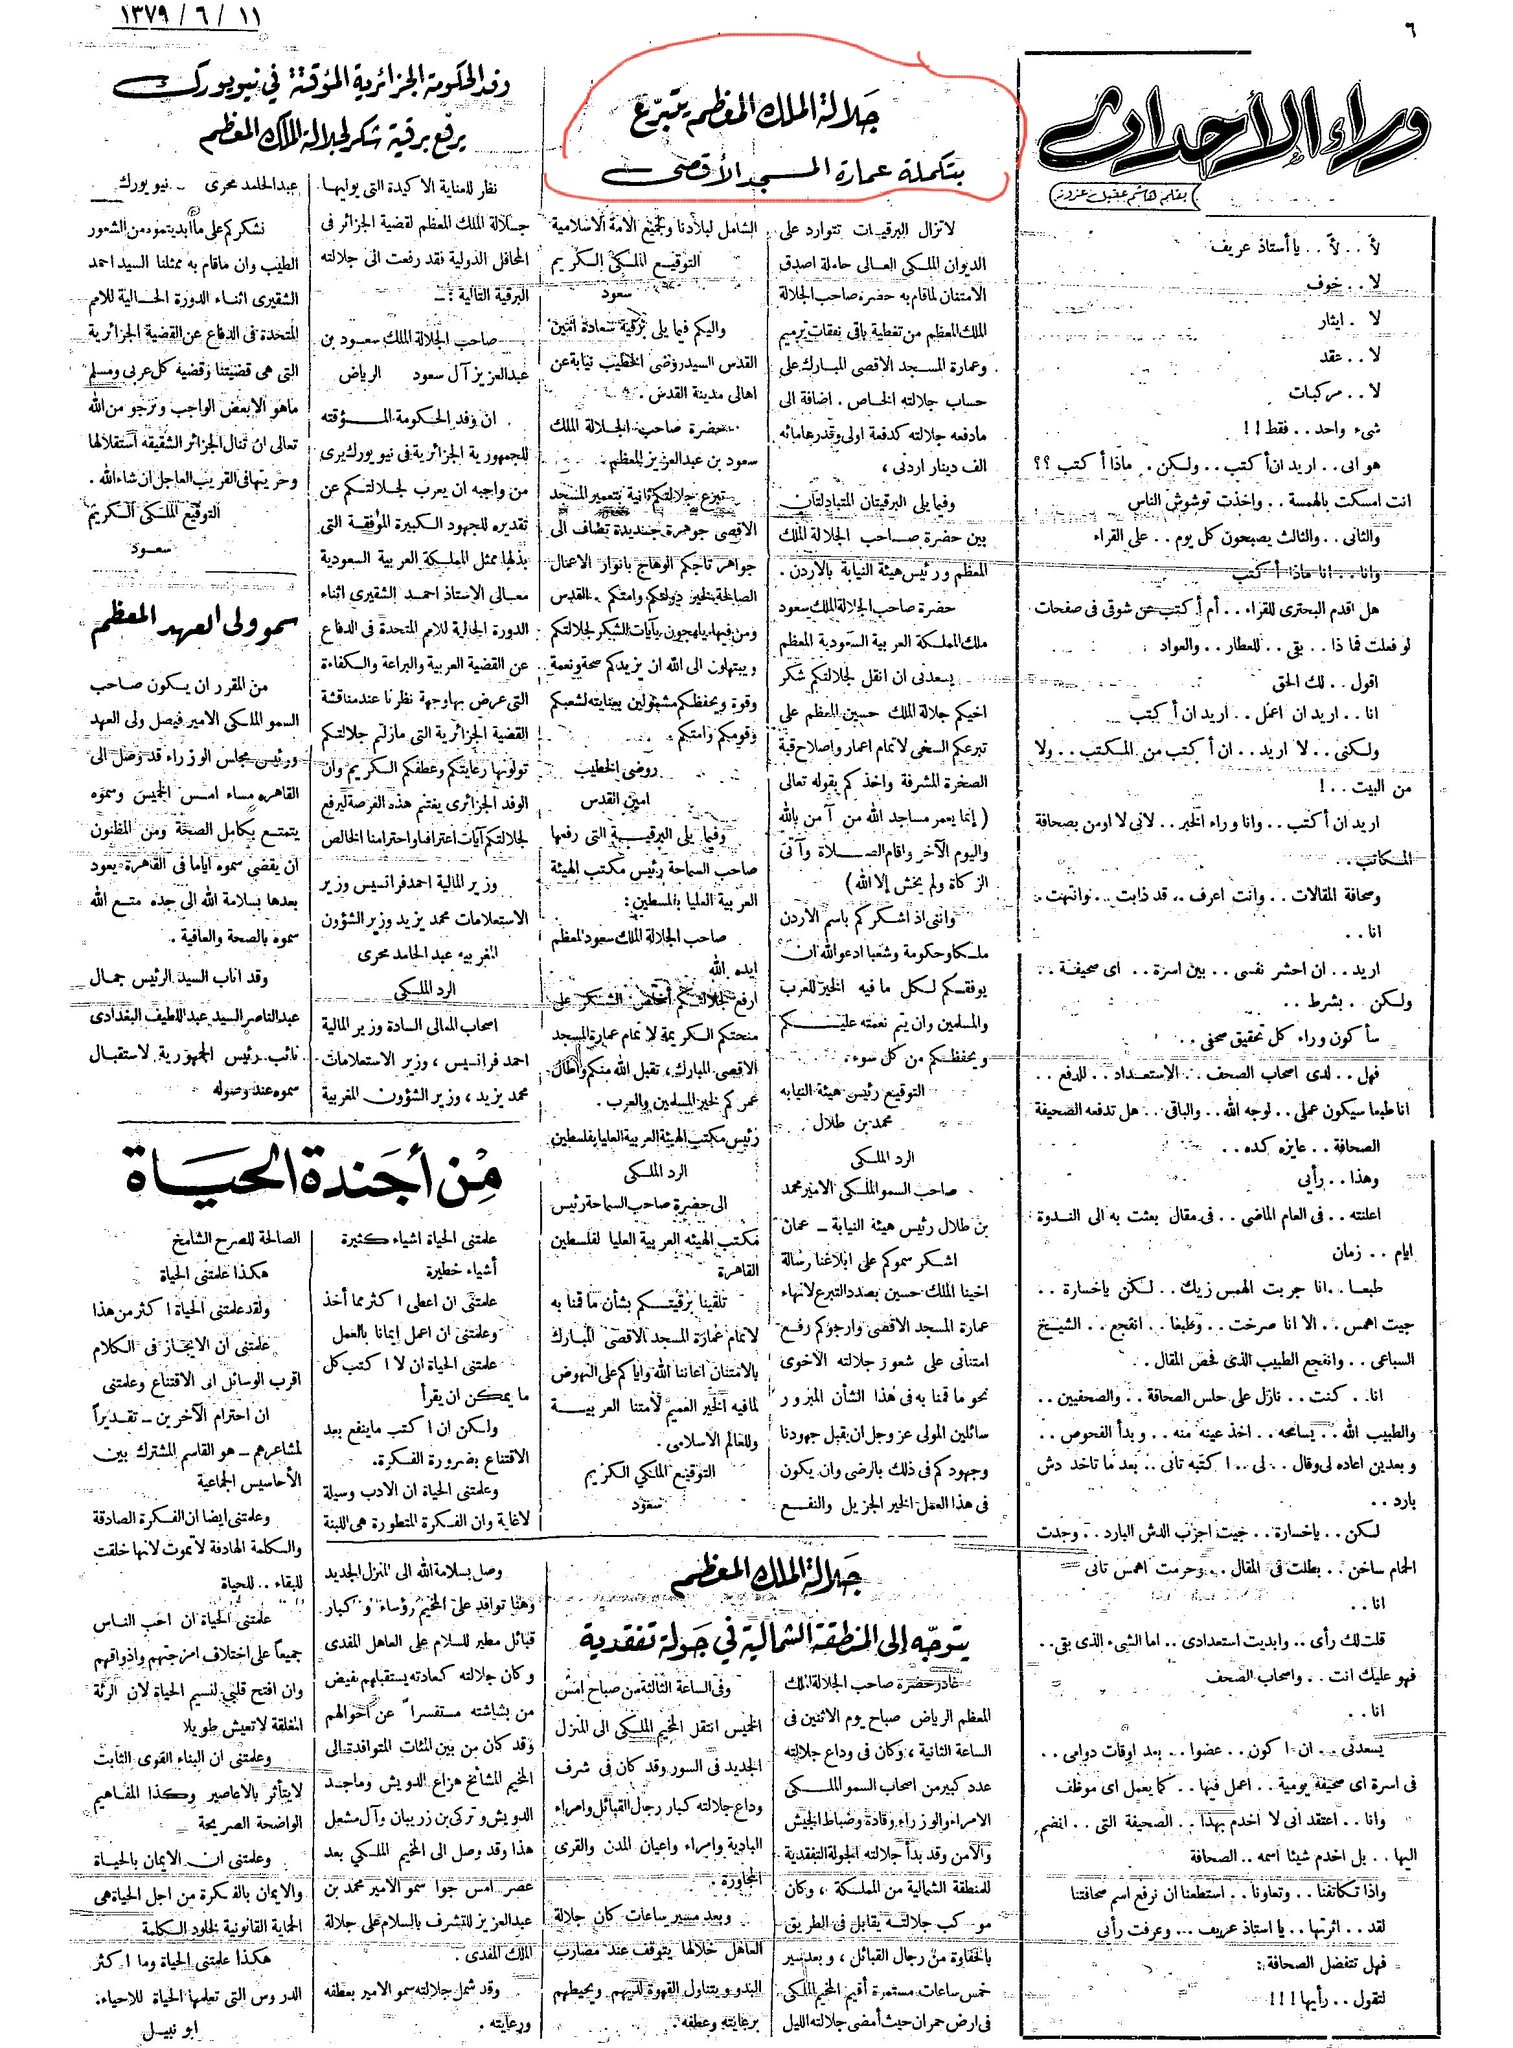 ٦
١١ / ٦ / ١٣٧٩
وراء الأحداث
بقلم هاشم عقيل عزوز
لا . . لا . . يا أستاذ عريف
لا . . خوف
لا . ايثار
لا . . عقد
لا . . مركبات
شىء واحد . . فقط ! !
هو انى . . اريد ان أكتب . . ولكن . ماذا أكتب ؟؟
انت امسكت بالهمسة . . واخذت توشوش الناس
والثانى . . والثالث يصبحون كل يوم . . على القراء
وانا . . انا ماذا أكتب
هل اقدم البحترى للقراء . . أم أكتب عن شوقى فى صفحات
لو فعلت فما ذا . . بقى . . للعطار . . والعواد
اقول . . لك الحق
انا . . اريد ان اعمل . . اريد ان أكتب
ولكنى . . لا اريد . . ان أكتب من المكتب . . ولا
من البيت . . !
اريد ان أكتب . . وانا وراء الخبر . . لانى لا اومن بصحافة
المكاتب . .
وصحافة المقالات . . وانت اعرف . . قد ذابت . . وانتهت .
انا . .
اريد . . ان احشر نفسى . . بين اسرة . . اى صحيفة . .
ولكن . . بشرط . .
سأكون وراء كل تحقيق صحفى . .
فهل . . لدى اصحاب الصحف . . الاستعداد . . للدفع . .
انا طبعا سيكون عملى . . لوجه الله . . والباقى . . هل تدفعه الصحيفة
الصحافة . . عايزه كده . .
وهذا . . رأيى
اعلنته . . فى العام الماضى . . فى مقال بعثت به الى الندوة
ايام . . زمان
طبعا . . انا جربت الهمس زيك . . لكن ياخسارة . .
جيت اهمس . . الا انا صرخت . . وطبعا . . انفجع . . الشيخ
السباعى . . وانفجع الطبيب الذى فحص المقال . .
انا . . كنت . . نازل على حلس الصحافة . . والصحفيين . .
والطبيب الله . . يسامحه . . اخذ عينه منه . . وبدأ الفحوص . .
وبعدين اعاده لى وقال . . لى . . اكتبه تانى . . بعد ما تاخد دش
بارد . .
لكن . . ياخسارة . . جيت اجرب الدش البارد . . وجدت
الحمام ساخن . . بطلت فى المقال . . وحرمت اهمس تانى
انا . .
قلت لك رأى . . وابديت استعدادى . . اما الشىء الذى بقى . .
فهو عليك انت . . واصحاب الصحف
انا . .
يسعدنى . . ان اكون . . عضوا . . بعد اوقات دوامى . .
فى اسرة اى صحيفة يومية . . اعمل فيها . . كما يعمل اى موظف
وانا . . اعتقد انى لا اخدم بهذا . . الصحيفة التى . . انضم
اليها . . بل اخدم شيئا اسمه . . الصحافة
واذا تكاتفنا . . وتعاونا . . استطعنا ان نرفع اسم صحافتنا
لقد . . اثرتها . . يا استاذ عريف . . . وعرفت رأيى
فهل تتفضل الصحافة :
لتقول . . رأيها ! ! !
جلالة الملك المعظم يتبرع
بتكملة عمارة المسجد الأقصى
لاتزال البرقيات تتوارد على
الديوان الملكى العالى حاملة اصدق
الامتنان لما قام به حضرة صاحب الجلالة
الملك المعظم من تغطية باقى نفقات ترميم
وعمارة المسجد الاقصى المبارك على
حساب جلالته الخاص . اضافة الى
مادفعه جلالته كدفعة اولى وقدرها مائه
الف دينار اردنى ،
وفيما يلى البرقيتان المتبادلتان
بين حضرة صاحب الجلالة الملك
المعظم ورئيس هيئة النيابة بالأردن .
حضرة صاحب الجلالة الملك سعود
ملك المملكة العربية السعودية المعظم
يسعدنى ان انقل لجلالتكم شكر
اخيكم جلالة الملك حسين المعظم على
تبرعكم السخى لاتمام اعمار واصلاح قبة
الصخرة المشرفة واخذكم بقوله تعالى
( إنما يعمر مساجد الله من آمن بالله
واليوم الآخر واقام الصلاة وآتى
الزكاة ولم يخش إلا الله )
واننى اذ اشكركم باسم الأردن
ملكا وحكومة وشعبا ادعو الله ان
يوفقكم لكل ما فيه الخير للعرب
والمسلمين وان يتم نعمته عليكم
ويحفظكم من كل سوء .
التوقيع رئيس هيئة النيابه
محمد بن طلال
الرد الملكى
صاحب السمو الملكى الامير محمد
بن طلال رئيس هيئة النيابة ـ عمان
اشكر سموكم على ابلاغنا رسالة
اخينا الملك حسين بصدد التبرع لانهاء
عمارة المسجد الاقصى وارجوكم رفع
امتنانى على شعور جلالته الاخوى
نحو ما قمنا به فى هذا الشأن المبرور
سائلين المولى عز وجل ان يقبل جهودنا
وجهودكم فى ذلك بالرضى وان يكون
فى هذا العمل الخير الجزيل والنفع
الشامل لبلادنا ولجميع الامة الاسلامية
التوقيع الملكى الكريم
سعود
واليكم فيما يلى برقية سعادة امين
القدس السيد روضى الخطيب نيابة عن
اهالى مدينة القدس .
حضرة صاحب الجلالة الملك
سعود بن عبدالعزيز المعظم .
تبرع جلالتكم ثانية بتعمير المسجد
الاقصى جوهرة جديدة تضاف الى
جواهر تاجكم الوهاج بانوار الاعمال
الصالحة لخير دولتكم وامتكم . القدس
ومن فيها يلهجون بآيات الشكر لجلالتكم
ويبتهلون الى الله ان يزيدكم صحة ونعمة
وقوة ويحفظكم مشمولين بعنايته لشعبكم
وقومكم وامتكم
روضى الخطيب
امين القدس
وفيما يلى البرقية التى رفعها
صاحب السماحة رئيس مكتب الهيئة
العربية العليا بفلسطين :
صاحب الجلالة الملك سعود المعظم
ايده الله
ارفع لجلالتكم اخلص الشكر على
منحتكم الكريمة لاتمام عمارة المسجد
الاقصى المبارك ، تقبل الله منكم واطال
عمركم لخير المسلمين والعرب .
رئيس مكتب الهيئة العربية العليا بفلسطين
الرد الملكى
الى حضرة صاحب السماحة رئيس
مكتب الهيئه العربية العليا لفلسطين
القاهرة
تلقينا برقيتكم بشأن ما قمنا به
لاتمام عمارة المسجد الاقصى المبارك
بالامتنان اعاننا الله واياكم على النهوض
لما فيه الخير العميم لأمتنا العربية
وللعالم الاسلامى .
التوقيع الملكي الكريم
سعود
وفد الحكومة الجزائرية المؤقتة في نيويورك
يرفع برقية شكر لجلالة الملك المعظم
نظر للعناية الاكيدة التى يوليها
جلالة الملك المعظم لقضية الجزائر فى
المحافل الدولية فقد رفعت الى جلالته
البرقية التالية : ـ
صاحب الجلالة الملك سعود بن
عبدالعزيز آل سعود الرياض
ان وفد الحكومة المؤقته
للجمهورية الجزائرية فى نيويورك يرى
من واجبه ان يعرب لجلالتكم عن
تقديره للجهود الكبيرة الموفقة التى
بذلها ممثل المملكة العربية السعودية
معالى الاستاذ احمد الشقيرى اثناء
الدورة الحالية للامم المتحدة فى الدفاع
عن القضية العربية والبراعة والكفاءة
التى عرض بها وجهة نظرنا عند مناقشة
القضية الجزائرية التى مازلتم جلالتكم
تولونها رعايتكم وعطفكم الكريم وان
الوفد الجزائرى يغتنم هذه الفرصة ليرفع
لجلالتكم آيات اعترافنا واحترامنا الخالص
وزير المالية احمد فرانسيس وزير
الاستعلامات محمد يزيد وزير الشؤون
المغربيه عبد الحامد محرى
الرد الملكى
اصحاب المعالى السادة وزير المالية
احمد فرانسيس ، وزير الاستعلامات
محمد يزيد ، وزير الشؤون المغربية
عبدالحامد محرى ـ نيويورك
نشكركم على ما أبديتموه من الشعور
الطيب وان ماقام به ممثلنا السيد احمد
الشقيرى اثناء الدورة الحالية للامم
المتحدة فى الدفاع عن القضية الجزائرية
التى هى قضيتنا وقضية كل عربى ومسلم
ماهو الا بعض الواجب ونرجو من الله
تعالى ان تنال الجزائر الشقيقه استقلالها
وحريتها فى القريب العاجل ان شاء الله .
التوقيع الملكى الكريم
سعود
سمو ولى العهد المعظم
من المقرر ان يكون صاحب
السمو الملكى الامير فيصل ولى العهد
ورئيس مجلس الوزراء قد وصل الى
القاهره مساء امس الخميس وسموه
يتمتع بكامل الصحة ومن المظنون
ان يقضى سموه اياما فى القاهرة يعود
بعدها بسلامة الله الى جده متع الله
سموه بالصحة والعافية .
وقد اناب السيد الرئيس جمال
عبدالناصر السيد عبداللطيف البغدادى
نائب رئيس الجمهورية لاستقبال
سموه عند وصوله
من أجندة الحياة
علمتنى الحياة اشياء كثيرة
أشياء خطيرة
علمتنى ان اعطى اكثر مما أخذ
وعلمتنى ان اعمل إيمانا بالعمل
علمتنى الحياة ان لا اكتب كل
ما يمكن ان يقرأ
ولكن ان اكتب ماينفع بعد
الاقتناع بضرورة الفكرة .
وعلمتنى الحياة ان الادب وسيلة
لاغاية وان الفكرة المتطورة هى اللبنة
الصالحة للصرح الشامخ
هكذا علمتنى الحياة
ولقد علمتنى الحياة اكثر من هذا
علمتنى ان الايجاز فى الكلام
اقرب الوسائل الى الاقتناع وعلمتنى
ان احترام الآخرين ـ تقديراً
لمشاعرهم ـ هو القاسم المشترك بين
الأحاسيس الجماعية
وعلمتنى ايضا ان الفكرة الصادقة
والكلمة الهادفة لاتموت لانها خلقت
للبقاء . . للحياة
علمتنى الحياة ان احب الناس
جميعاً على اختلاف امزجتهم واذواقهم
وان افتح قلبي لنسيم الحياة لان الرئة
المغلقة لاتعيش طويلا
وعلمتنى ان البناء القوى الثابت
لايتأثر بالاعاصير وكذا المفاهيم
الواضحة الصريحة
وعلمتنى ان الايمان بالحياة
والايمان بالفكرة من اجل الحياة هى
الحماية القانونية لخلود الكلمة
هكذا علمتنى الحياة وما اكثر
الدروس التى تعلمها الحياة للاحياء .
ابو نبيل
جلالة الملك المعظم
يتوجه إلى المنطقة الشمالية في جولة تفقدية
غادر حضرة صاحب الجلالة الملك
المعظم الرياض صباح يوم الاثنين فى
الساعة الثانية ، وكان فى وداع جلالته
عدد كبير من اصحاب السمو الملكى
الامراء والوزراء وقادة وضباط الجيش
والأمن وقد بدأ جلالته الجولة التفقدية
للمنطقة الشمالية من المملكة ، وكان
موكب جلالته يقابل فى الطريق
بالحفاوة من رجال القبائل ، وبعد سير
خمس ساعات مستمرة أقيم المخيم الملكى
فى ارض حمران حيث أمضى جلالته الليل
وفى الساعة الثالثة من صباح امس
الخميس انتقل المخيم الملكى الى المنزل
الجديد فى السور وقد كان فى شرف
وداع جلالته كبار رجال القبائل وامراء
البادية وامراء واعيان المدن والقرى
المجاورة .
وبعد مسير ساعات كان جلالة
العاهل خلالها يتوقف عند مضارب
البدو ويتناول القهوة لديهم ويحيطهم
برعايته وعطفه .
وصل بسلامة الله الى المنزل الجديد
وهنا توافد على المخيم رؤساء وكبار
قبائل مطير للسلام على العاهل المفدى
وكان جلالته كعادته يستقبلهم بفيض
من بشاشته مستفسراً عن أحوالهم
وقد كان من بين المئات المتوافدة الى
المخيم المشائخ هزاع الدويش وماجد
الدويش وتركى بن زريبان وآل مشعل
هذا وقد وصل الى المخيم الملكي بعد
عصر امس جوا سمو الامير محمد بن
عبدالعزيز للتشرف بالسلام على جلالة
الملك المفدى .
وقد شمل جلالته سمو الامير بعطفه
ورعايته .